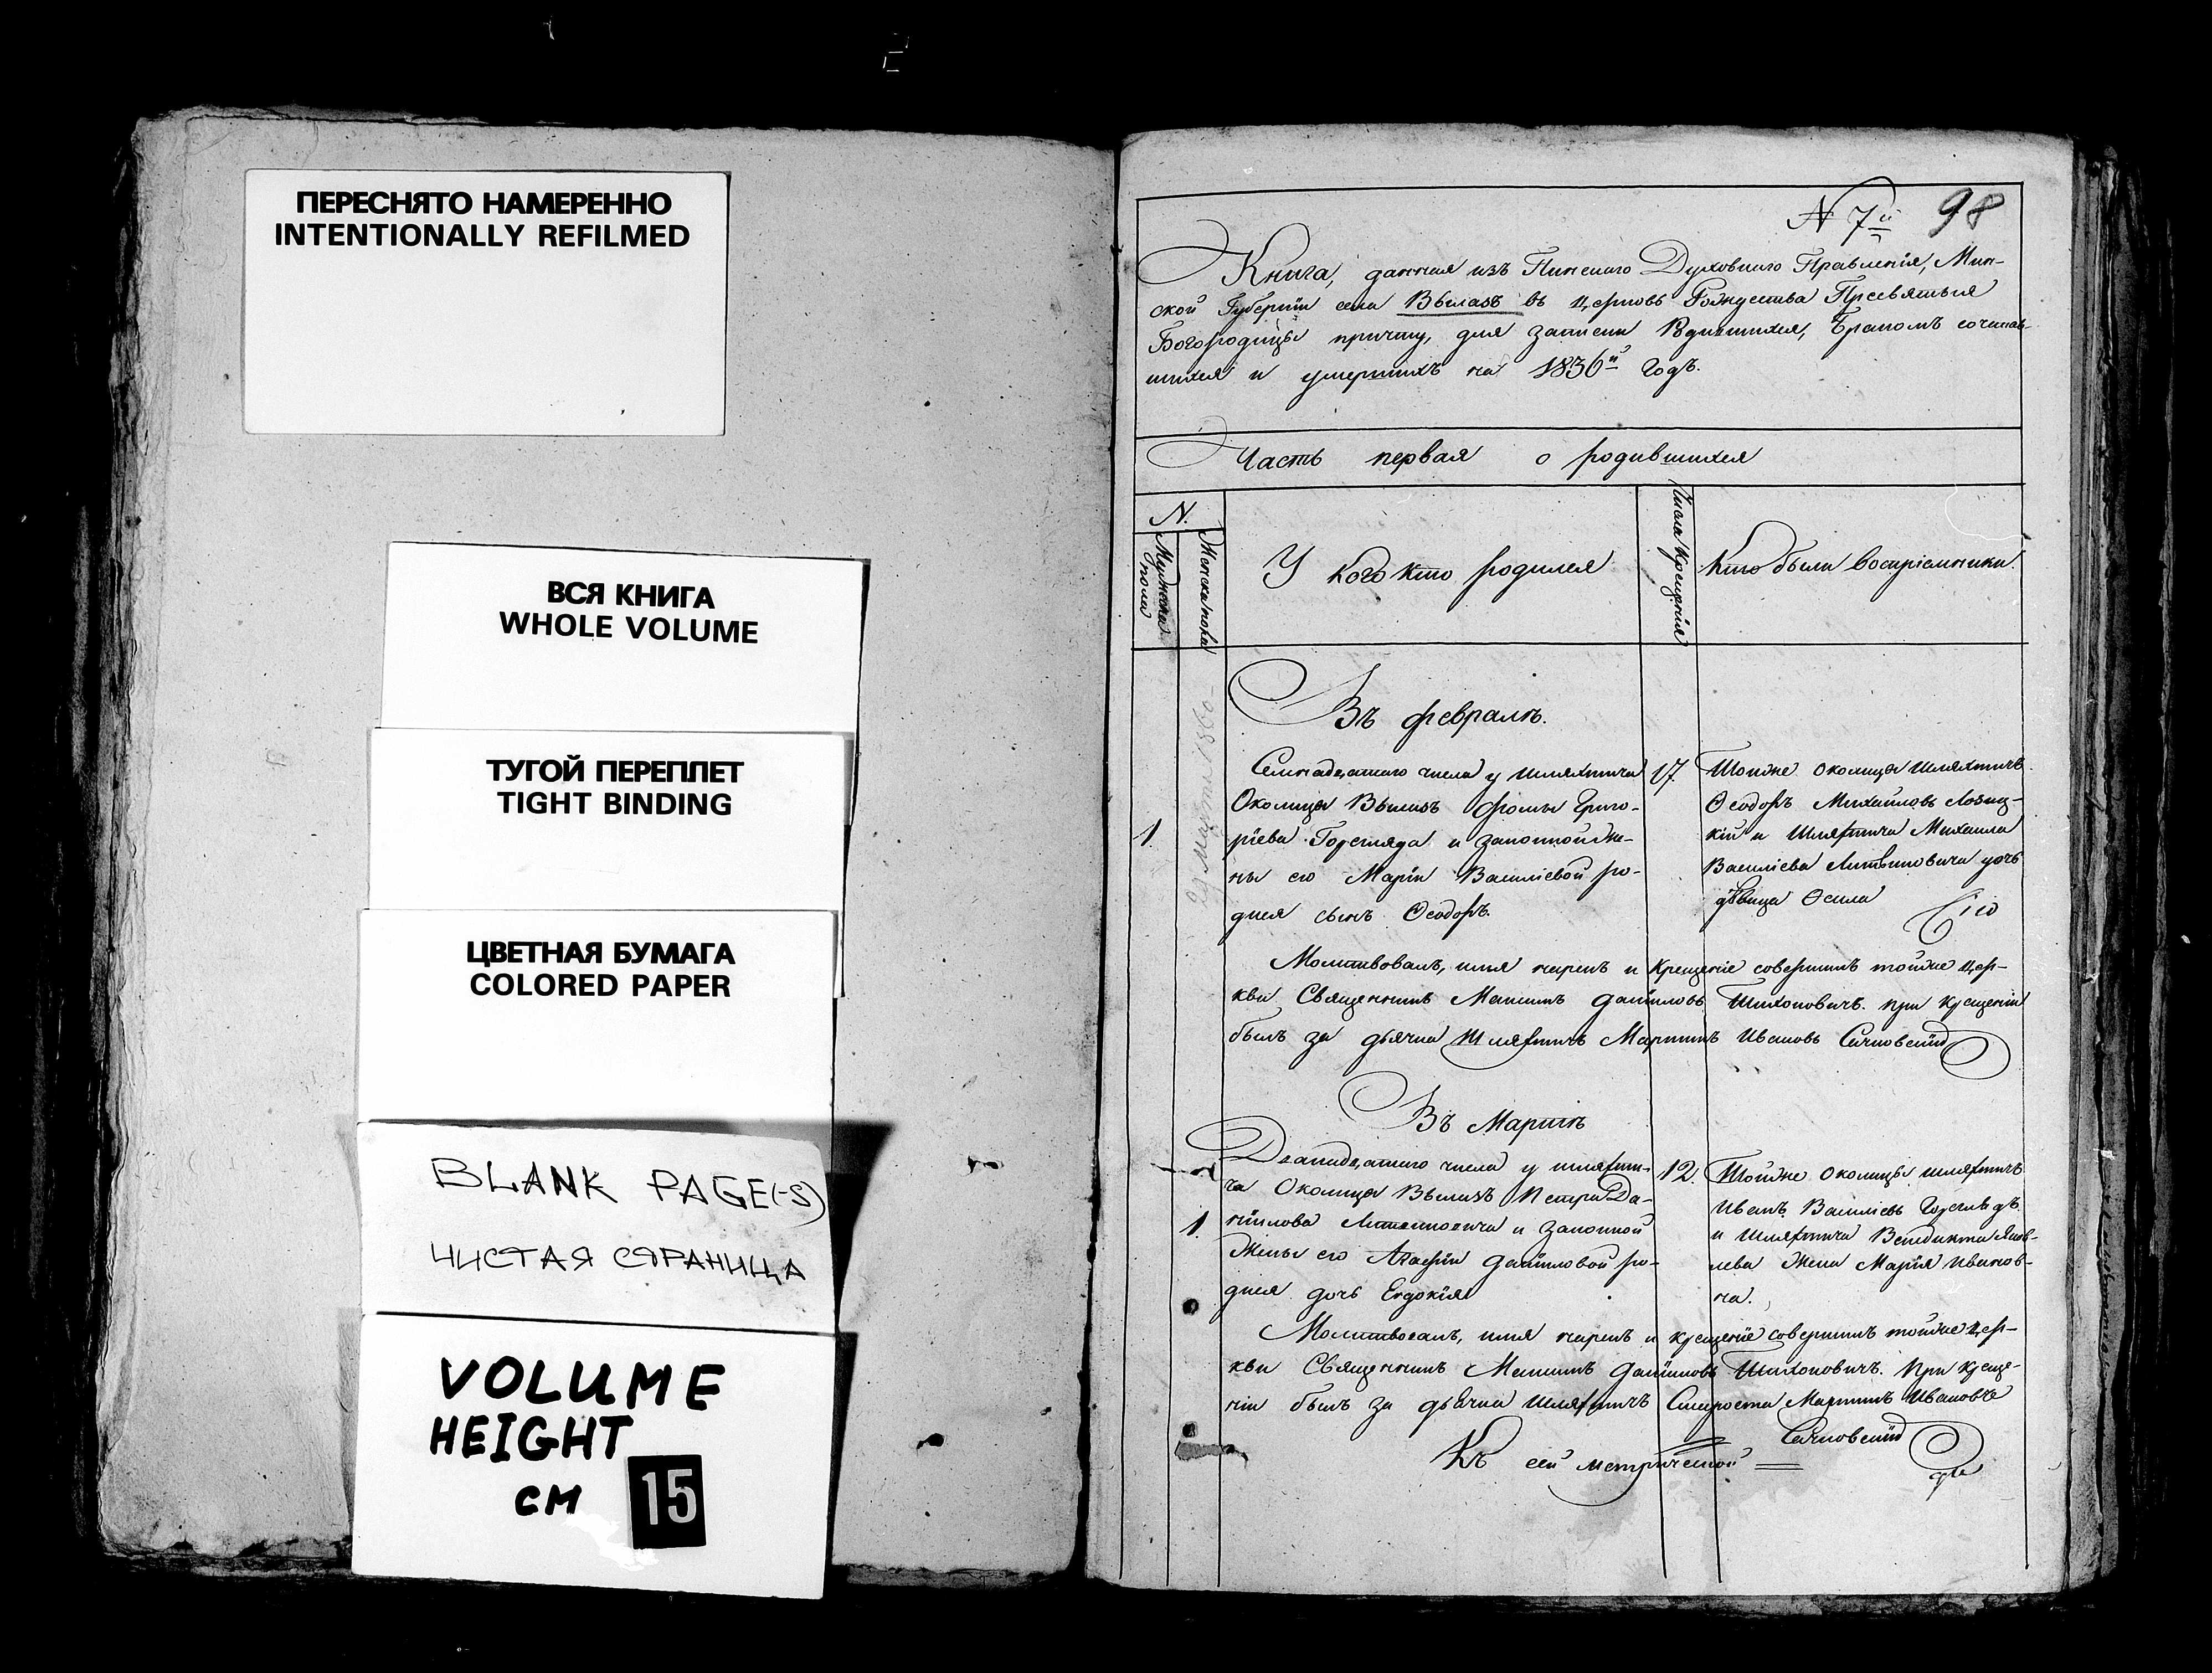 ПЕРЕСНЯТО НАМЕРЕННО
INTENTIONALLY REFILMED
ВСЯ КНИГА
WHOLE VOLUME
ТУГОЙ ПЕРЕПЛЕТ
TIGHT BINDING
ЦВЕТНАЯ БУМАГА
COLORED PAPER
BLANK PAGE(-S)
ЧИСТАЯ СТРАНИЦА
VOLUME
HEIGHT
СМ 15
N 7й 98
Книга, данная изъ Пинскаго Духовнаго Правленія, Мин-
ской Губерніи села Вылазъ въ церковь Рождества Пресвятыя
Богородицы причту, для записки Родившихся, Бракомъ сочетав-
шихся и умершихъ на 1836й Годъ.
Часть первая о родившихся
N.
Мужеска пола
Женска пола
У кого кто родился
Число крещенія
Кто были восприемники.
Въ февралѣ.
Семнадцатого числа у шляхтича
Околицы Вылазъ Фомы Григо-
ріева Горегляда и законной же-
ны его Маріи Василіевой ро-
дился сынъ Ѳеодоръ.
1.
17
Тойже околицы шляхтичъ
Ѳеодоръ Михайловъ Лозиц-
кій и Шляхтича Михаила
Василіева Литвиновича дочь
дѣвица
Молитвовалъ, имя нарекъ и крещеніе совершилъ тойже цер-
кви Священникъ Максимъ Даніиловъ Тихоновичъ. при крещеніи
былъ за дьячка Шляхтичъ Мартинъ Ивановъ Сачковскій
Въ Мартѣ
Дванадцатого числа у шляхти-
ча Околицы Вылазъ Петра Да-
ніилова Литвиновича и законной
Жены его Агафіи Даніиловой ро-
дился дочь Евдокія
1.
12.
Тойже околицы шляхтичъ
Иванъ Василіевъ Горегльдъ
и Шляхтича Венедикта Яков-
лева Жена Марія Иванов-
на.
Молитвовалъ, имя нарекъ и крещеніе совершилъ тойже цер-
кви Священникъ Максимъ Даніиловъ Тихоновичъ. При креще-
ніи былъ за дьячка Шляхтичъ Староста Мартинъ Ивановъ
Сачковскій
Къ сей метрической